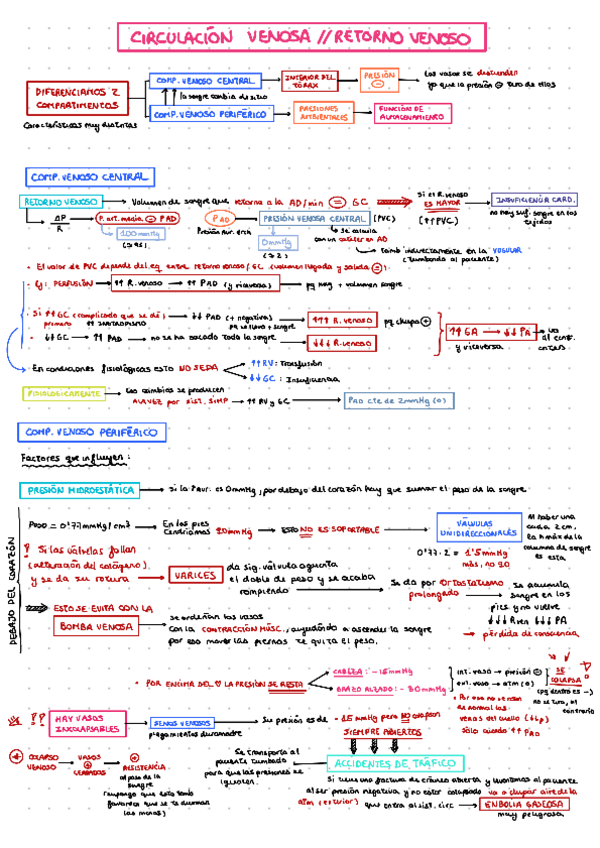 CIRCULACIÓN VENOSA // RETORNO VENOSO
DIFERENCIAMOS 2 COMPARTIMENTOS
Características muy distintas
COMP. VENOSO CENTRAL
INTERIOR DEL TÓRAX
PRESIÓN ⊖
Los vasos se distienden
ya que la presión ⊖ tira de ellos
la sangre cambia de sitio
COMP. VENOSO PERIFÉRICO
PRESIONES AMBIENTALES
FUNCIÓN DE ALMACENAMIENTO
COMP. VENOSO CENTRAL
RETORNO VENOSO
Volumen de sangre que retorna a la AD/min = GC
Si el R. venoso ES MAYOR
[↑↑PVC]
INSUFICIENCIA CARD.
no hay suf. sangre en los tejidos
ΔP
R
P. art. media ⊖ PAD
100 mmHg
PAD
Presión aur. drch
PRESIÓN VENOSA CENTRAL [PVC]
0 mmHg
Se calcula
con un catéter en AD
Tamb indirectamente en la YUGULAR
(tumbando al paciente)
• El valor de PVC depende del eq. entre retorno venoso / GC (volumen llegada y salida =).
• Ej: PERFUSIÓN → ↑↑ R. venoso → ↑↑ PAD (y viceversa) → pq hay + volumen sangre
• Si ↑↑ GC (complicado que se dé) → ↓↓ PAD (+ negativa) → ↑↑↑ R. venoso pq chupa ⊕
primero ↑↑ INOTROPISMO
• ↓↓ GC → ↑↑ PAD → no se ha sacado toda la sangre → ↓↓↓ R. venoso
↑↑ GA → ↓↓ PA
y viceversa
En condiciones fisiológicas esto NO SE DA
↑↑ RV: Transfusión
↓↓ GC: Insuficiencia
FISIOLÓGICAMENTE
Los cambios se producen
A LA VEZ por sist. SIMP → ↑↑ RV y GC
PAD cte de 2 mmHg (0)
COMP. VENOSO PERIFÉRICO
Factores que influyen:
PRESIÓN HIDROESTÁTICA → Si la Paur. es 0 mmHg, por debajo del corazón hay que sumar el peso de la sangre
DEBAJO DEL CORAZÓN
Peso = 0'77 mmHg/cm²
En los pies tendríamos 90 mmHg
ESTO NO ES SOPORTABLE
VÁLVULAS UNIDIRECCIONALES
Al haber una cada 2 cm,
la P máx de la columna de sangre es esta
0'77 · 2 = 1'5 mmHg
más, no 90
? Si las válvulas fallan
(alteración del colágeno)
y se da su rotura
VARICES
la sig. válvula aguanta
el doble de peso y se acaba
rompiendo
Se da por ORTOSTATISMO prolongado
Se acumula sangre en los
pies y no vuelve
↓↓↓ R ven ↓↓↓ PA
→ pérdida de consciencia
ESTO SE EVITA CON LA
BOMBA VENOSA
se ordeñan los vasos
con la CONTRACCIÓN MÚSC., ayudando a ascender la sangre
por eso mover las piernas te quita el peso.
• POR ENCIMA DEL ♡ LA PRESIÓN SE RESTA
CABEZA: -15 mmHg
BRAZO ALZADO: -30 mmHg
int. vaso → presión ⊖
ext. vaso → atm (0)
SE COLAPSA
(pq dentro es -)
no se tira, al contrario
• Por eso no vemos
de normal las
venas del cuello (↓↓P)
sólo cuando ↑↑ PAD
??
HAY VASOS INCOLAPSABLES
SENOS VENOSOS
plegamientos duramadre
Su presión es de -15 mmHg pero NO colapsan
SIEMPRE ABIERTOS
⊕ COLAPSO VENOSO → VASOS ⊕ CERRADOS → ⊕ RESISTENCIA
al paso de la sangre
(supongo que esto tamb
favorece que se te duerman
las manos)
Se transporta al
paciente tumbado
para que las presiones se
igualen.
ACCIDENTES DE TRÁFICO
Si tiene una fractura de cráneo abierta y levantamos al paciente
al ser presión negativa y no estar colapsado va a chupar aire de la
atm (exterior) que entra al sist. circ → EMBOLIA GASEOSA
muy peligrosa.